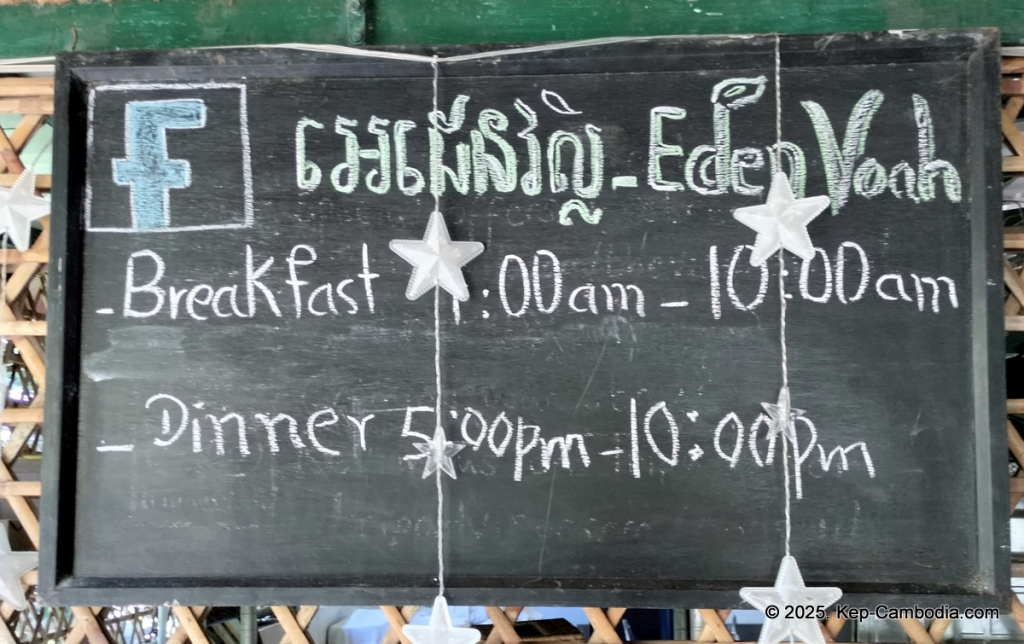 f អេដែនវ៉ាល្ - Eden Voah
- Breakfast :00am - 10:00am
- Dinner 5:00pm - 10:00pm
© 2025. Kep-Cambodia.com